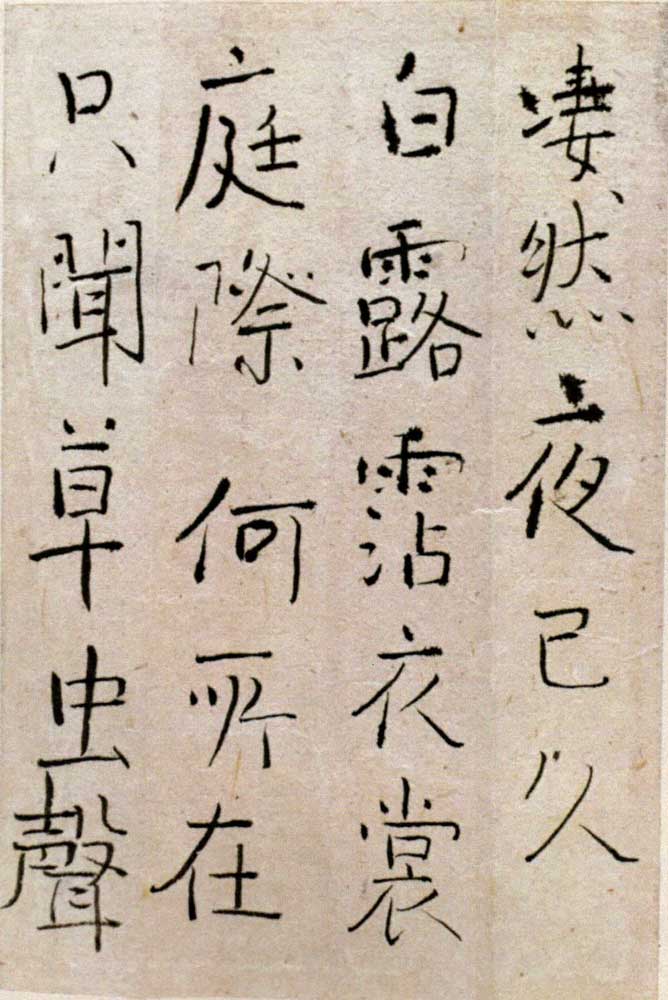 淒然夜已久
白露霑衣裳
庭際何所在
只聞草虫聲